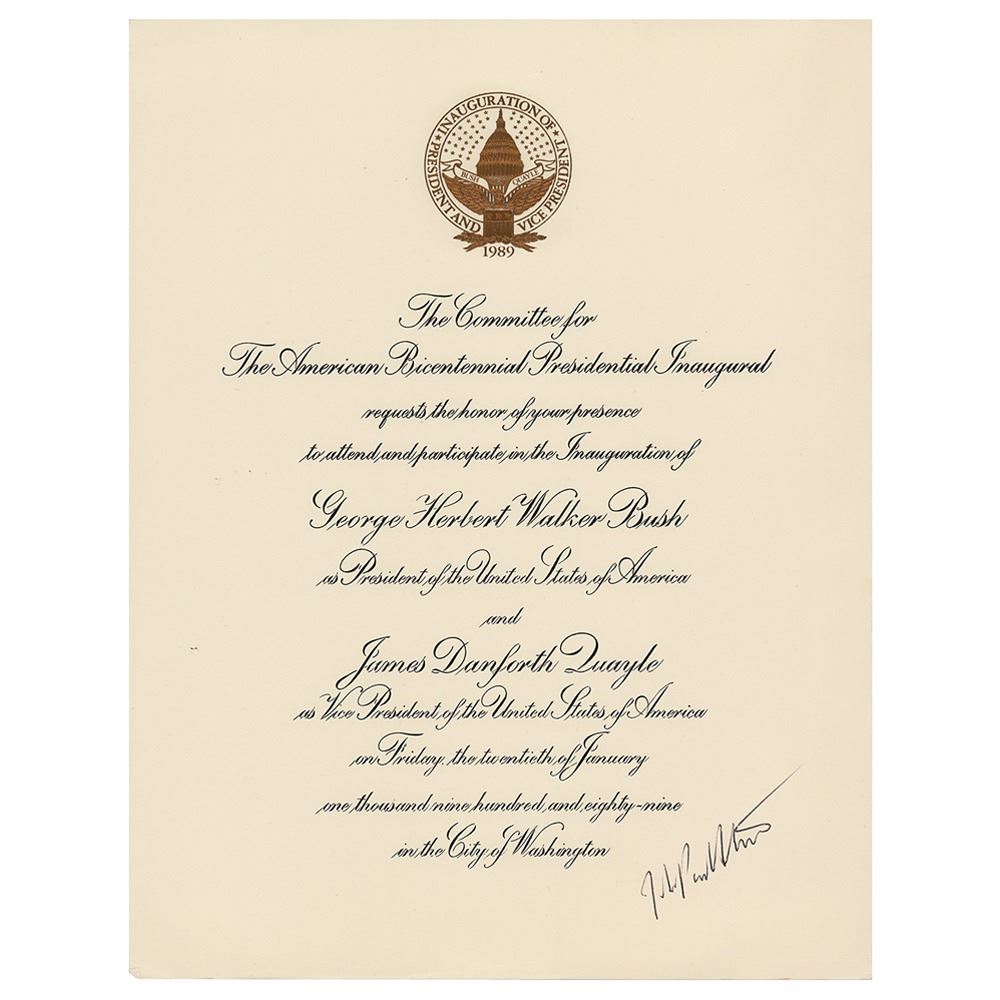 INAUGURATION OF
PRESIDENT AND VICE PRESIDENT
BUSH QUAYLE
1989
The Committee for
The American Bicentennial Presidential Inaugural
requests the honor of your presence
to attend and participate in the Inauguration of
George Herbert Walker Bush
as President of the United States of America
and
James Danforth Quayle
as Vice President of the United States of America
on Friday, the twentieth of January
one thousand nine hundred and eighty-nine
in the City of Washington